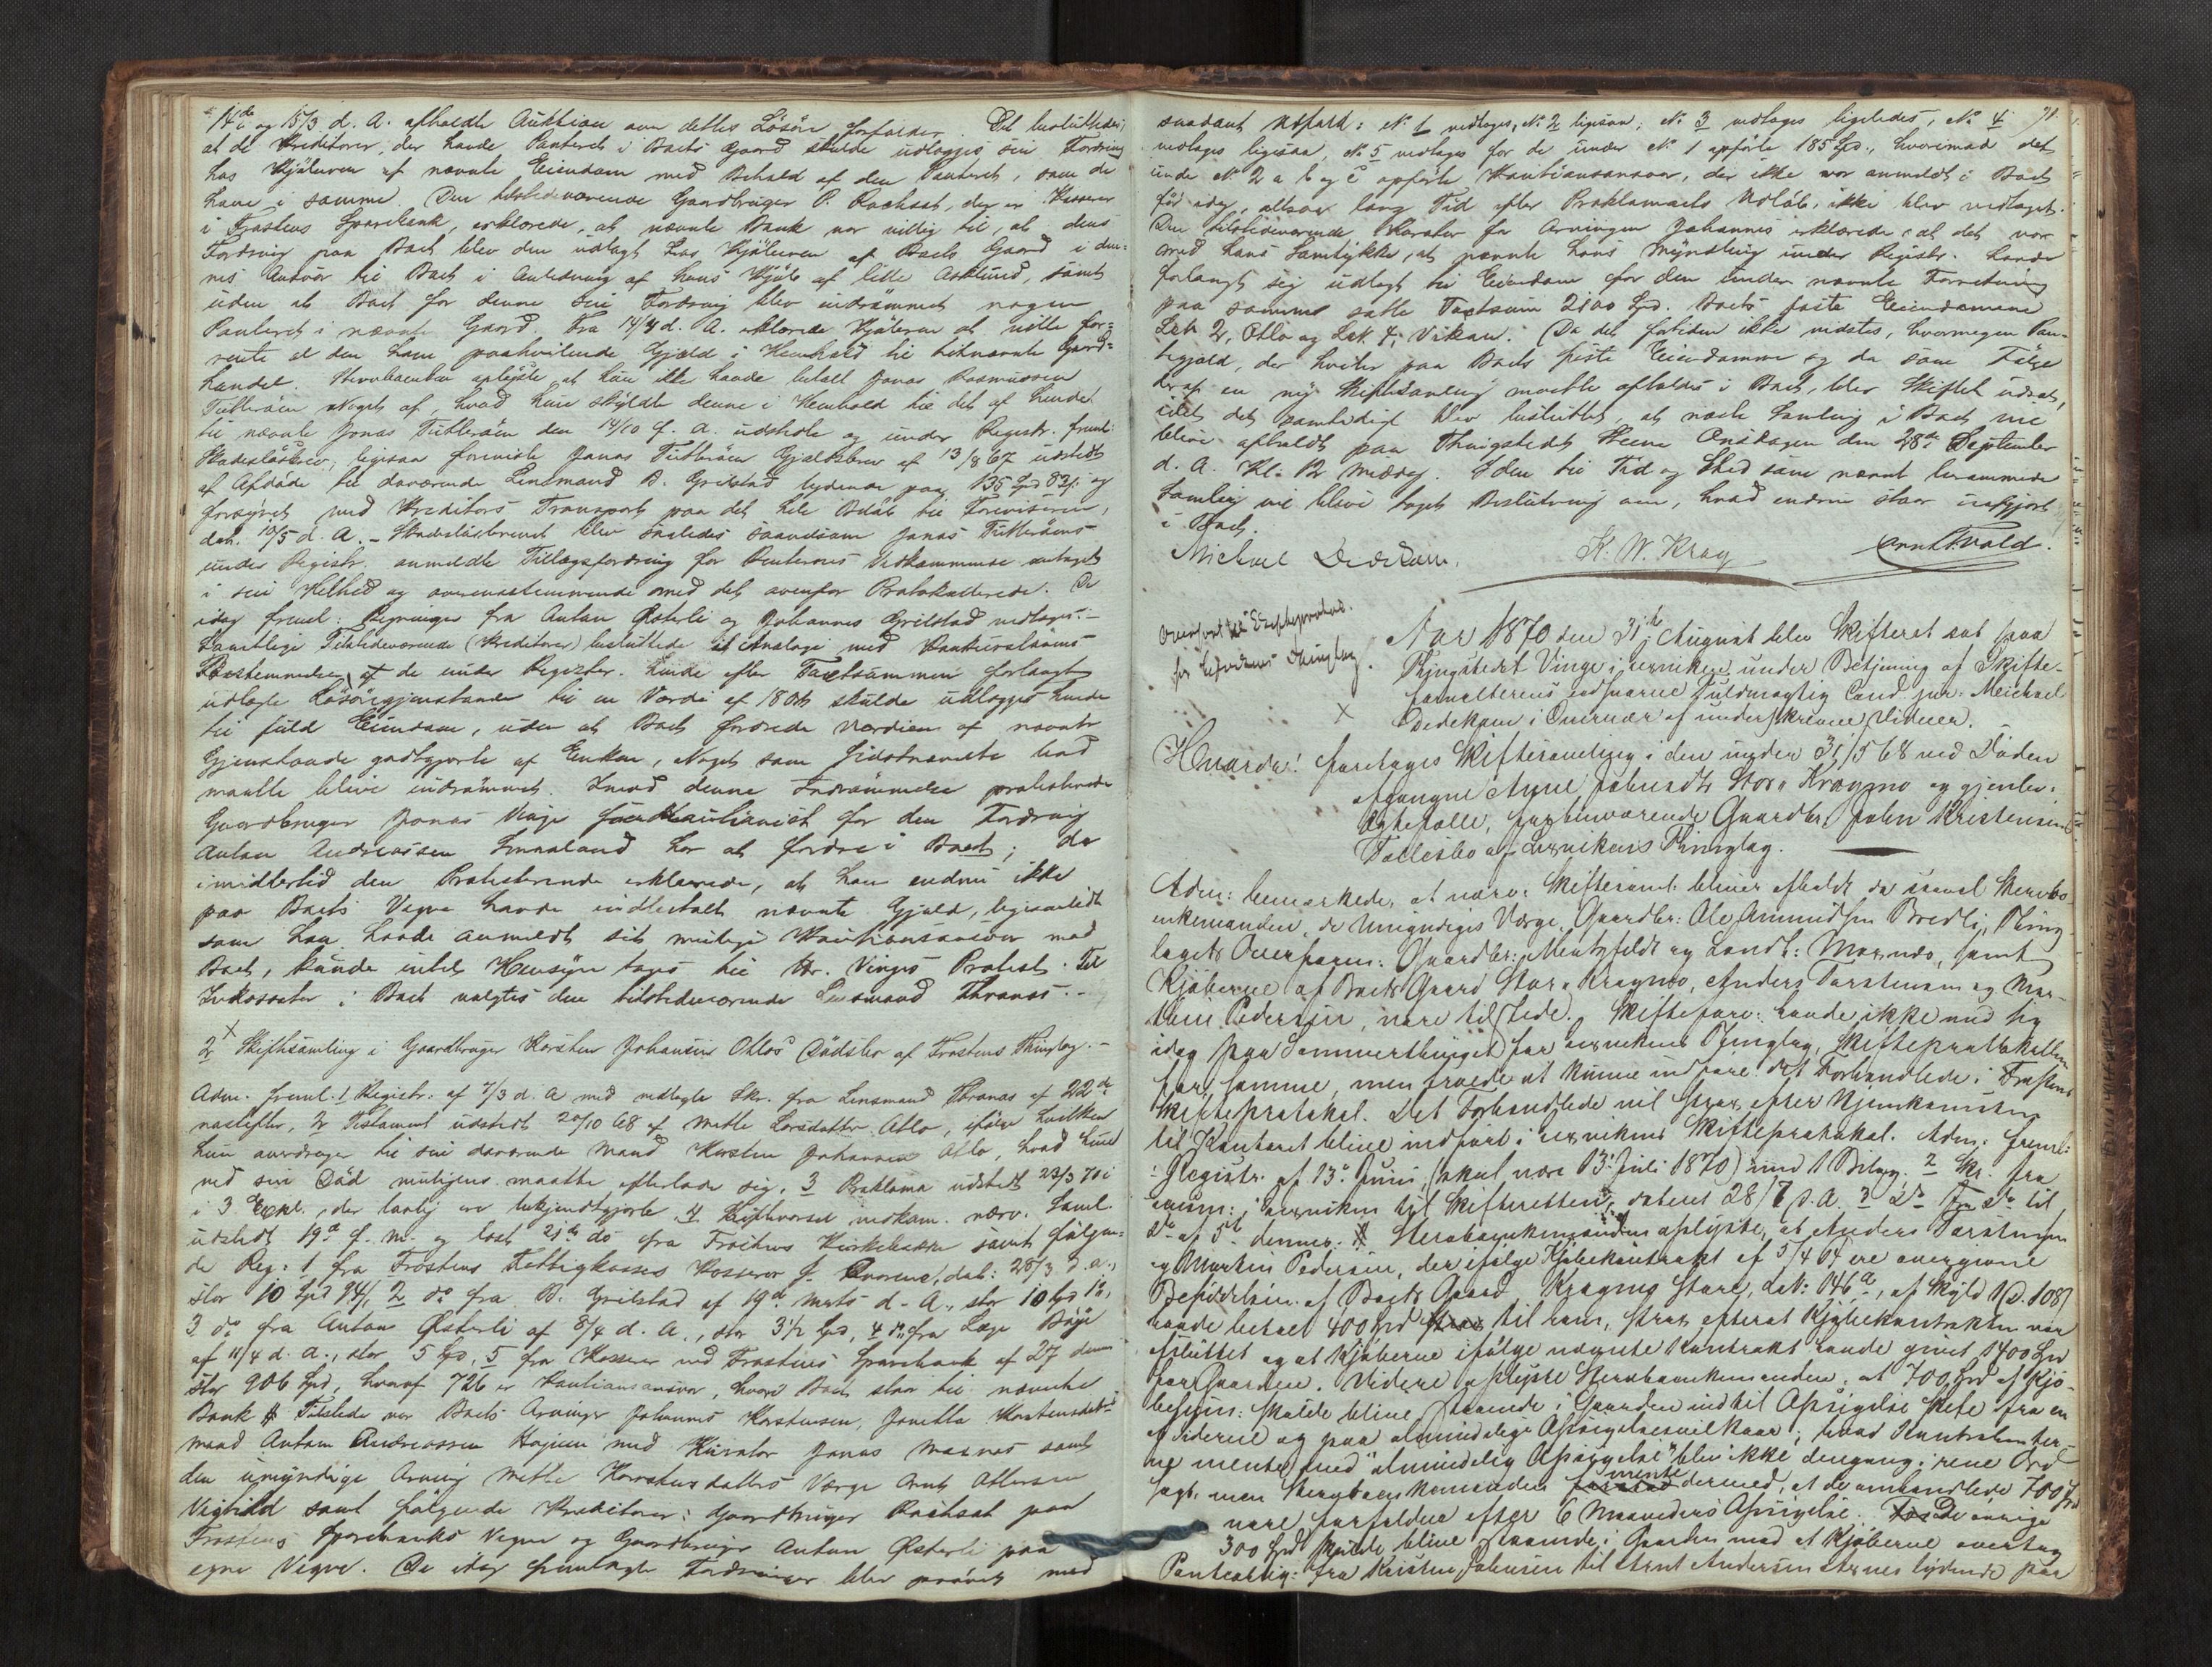 14de og 15/3 d. A. afholdte Auktion over dettes Lösöre forfalder. Det besluttedes,
at de Kreditorer, der havde Panteret i Boets Gaard skulde udlægges sin Fordring
hos Kjöberen af nævnte Eiendom med Behold af den Panteret, som de
have i samme. Den tilstedeværende Gaardbruger P. Rochset, der er Kasserer
i Frostens Sparebank, erklærede, at nævnte Bank var villig til, at dens
Fordring paa Boet blev den udlagt hos Kjöberen af Boets Gaard i den-
nes Ansvar til Boet i Anledning af hans Kjöb af lille Aaklund, samt
uden at Boet for denne sin Fordring blev indrömmet nogen
Panteret i nævnte Gaard. Fra 14/4 d. A. erklærede Kjöberen at ville for-
rente al den ham paahvilende Gjæld i Henhold til bitnævnte Gaard-
handel. Stervboenken oplyste at hun ikke havde betalt Jonas Rasmussen
Tutteröen Noget af, hvad hun skyldte denne i Henhold til det af hende
til nævnte Jonas Tutteröen den 14/10 f. A. udstedte og under Registr. freml:
Skadeslösbrev, ligesaa foreviste Jonas Tutteröen Gjældsbrev af 13/8 67 udstedt
af Afdöde til daværende Lensmand B. Grilstad lydende paa 135 Spd 83 s. og
forsynet med Kreditors Transport paa det hele Belöb til Foreviseren,
dat. 10/5 d. A. – Skadeslösbrevet blev saaledes saavelsom Jonas Tutteröens
under Registr. anmeldte Tillægsfordring for Renternes Vedkommende antaget
i sin Helhed og overensstemmende med det ovenfor Protokollerede. De
idag freml: Regninger fra Anton Østerli og Johannes Grilstad vedtages. –
Samtlige Tilstedeværende (Kreditorer) besluttede at Analoge med Konkurslovens
Bestemmelser af de under Register. Enke efter Taxtsummen forlangt
udlagte Lösöregjenstande til en Værdi af 18 Ort skulde udlægges hende
til fuld Eiendom, uden at Boet fordrede Værdien af nævnte
Gjenstande godtgjorte af Enken, Noget som sidstnævnte bad
maatte blive indrömmet. Imod denne Indrömmelse protesterede
Gaardbruger Jonas Vinge som Kautionist for den Fordring
Anton Andreassen Smaaland har at fordre i Boet; da
imidlertid den Protesterende erklærede, at han endnu ikke
paa Boets Vegne havde indbetalt nævnte Gjæld, ligesaalidt
som han havde anmeldt sit mulige Kautionsansvar mod
Boet, kunde intet Hensyn tages til Hr. Vinges Protest. Til
Inkassator i Boet valgtes den tilstedeværende Lensmand Thranæs. –
X
2 Skiftesamling i Gaardbruger Karsten Johansen Othlos Dödsbo af Frostens Thinglag. –
Adm. freml. 1 Registr. af 7/3 d. A med vedlagte Skr. fra Lensmand Thranæs af 22de
næstefter, 2 Testament udstedt 20/10 68 af Mette Larsdatter Atlo, ifölge hvilken
hun overdrager til sin daværende Mand Karsten Johansen Atlo, hvad hun
ved sin Död muligens maatte efterlade sig. 3 Proklama udstedt 23/3 70 i
i 3 Expl., der lovlig ere bekjendtgjorte 4 Skiftevarsel vedkom. nærv. Saml.
udstedt 19de f. M. og læst 21de do fra Frostens Kirkebakke samt fölgen-
de Reg: 1 fra Frostens Fattigkasses Kasserer J. Qvorene, dat: 25/3 d. A.,
stor 10 Spd 94 s, 2 do fra B. Grilstad af 19de Marts d. A., stor 10 Spd 12 s,
3 do fra Anton Østerli af 8/4 d. A., stor 3 1/2 Spd, 4 do fra Læge Böye
af 11/4 d. A., stor 5 Spd, 5 fra Kasserer ved Frostens Sparebank af 27 dennes
stor 906 Spd, hvoraf 726 er Kautionsansvar, hvori Boet staar til nævnte
Bank # Tilstede var Boets Arvinger Johannes Karstensen, Jonetta Karstensdatters
mand Anton Andreassen Hojem med Kurator Jonas Maxnæs samt
den umyndige Arving Mette Karstensdatters Værge Arnt Ottersen
Vigtild samt fölgende Kreditorer: Gaardbruger Rochset paa
Frostens Sparebanks Vegne og Gaardbruger Anton Østerli paa
egne Vegne. De idag fremlagte Fordringer blev prövet med
71.
saadant Udfald: No 1 vedtages, No 2 ligesaa, No 3 vedtages ligeledes, No 4
vedtages ligesaa, No 5 vedtages for de under No 1 opförte 185 Spd., hvorimod det
under No 2 a b og c opförte Kautionsansvar, der ikke var anmeldt i Boet
för idag, altsaa lang Tid efter Proklamaets Udlöb, ikke blev vedtaget.
Den tilstedeværende Kurator for Arvingen Johannes erklærede at det var
med hans Samtykke, at nævnte hans Myndling under Registr. havde
forlangt sig udlagt til Eiendom for den under nævnte Forretning
paa samme satte Taxtsum 2100 Spd. Boets faste Eiendomme
Lit. 2, Otlo og Lit. 4, Vikan. (Da det fortiden ikke vidstes, hvormegen Pan-
tegjæld, der hviler paa Boets faste Eiendomme og da som Fölge
deraf en ny Skiftesamling maatte afholdes i Boet, blev Skiftet udsat,
idet det samtidigt blev besluttet, at næste Samling i Boet vil
blive afholdt paa Thingstedet Heene Onsdagen den 28de September
d. A. Kl. 12 Middag. I den til Tid og Sted saaledes nævnt berammede
Samling vil blive taget Beslutning om, hvad endnu staar uafgjort
i Boet.
Michael Dedekam. K. W. Krag Arnt Fvold.
Overfört til Skifteprotok.
for Lexvikens Thinglag.
X
Aar 1870 den 31te August blev Skifteret sat paa
Thingstedet Vinge i Lexviken under Betjening af Skifte-
forvalterens edsvorne Fuldmægtig Cand. jur. Michael
Dedekam i Overvær af underskrevne Vidner.
Hvorda: foretages Skiftesamling i den under 31/5 68 ved Döden
afgangne Ane Johnsdtr Stor Kragmo og gjenlev.
Ægtefælle, forhenværende Gaardbr. John Kristensens
Fællesbo af Lexvikens Thinglag.
Adm: bemærkede, at nærv: Skiftesaml. bliver afholdt da saavel Stervbo-
enkemanden, de Umyndiges Værge, Gaardbr: Ole Amundsen Bredli, Thing-
lagets Overform: Gaardbr: Mentzfeldt og Landh: Maxnæs, samt
Kjöberne af Boets Gaard Stor Kragmo, Anders Torstensen og Mar-
tin Pedersen, vare tilstede. Skifteforv: havde ikke med sig
idag paa Sommerthinget for Lexvikens Thinglag, Skifteprotokollen
for samme, men troede at kunne indföre det Forhandlede i Frostens
Skifteprotokol. Det Forhandlede vil strax efter Hjemkomsten
til Kontoret blive indfört i Lexvikens Skifteprotokol. Adm: freml:
1 Registr. af 13de Juni, (skal være 13de Juli 1870) med 1 Bilag. 2 Skr. fra
Lensm: i Lexviken til Skifteretten, dateret 28/7 d. A. 3 do fra do til
do af 5te dennes. # Stervboenkemanden oplyste, at Anders Torstensen
og Martin Pedersen, der ifölge Kjöbekontrakt af 5/4 64 ere overgivne
Besiddelsen af Boets Gaard Kragmo Store, Lit: 146a, af Skyld 1 D. 108 s
havde betalt 400 Spd til ham, strax efterat Kjöbekontrakten var
afsluttet og at Kjöberne ifölge nævnte Kontrakt havde givet 1400 Spd
for Gaarden. Videre oplyste Stervboenkemanden, at 700 Spd af Kjö-
besum: skulde blive staaende i Gaarden indtil Opsigelse skete fra en
af Siderne og paa almindelige Opsigelsesvilkaar; hvad Kontrahenter-
ne mente med "almindelig Opsigelse" blev ikke dengang i rene Ord
sagt, men Stervboenkemanden mente dermed, at de omhandlede 700 Spd
vare forfaldne efter 6 Maaneders Opsigelse. De övrige
300 Spd skulde blive staaende i Gaarden mod at Kjöberne overtog
Panteoblig: fra Kristen Johnsen til Arnt Andersen Aernes lydende paa